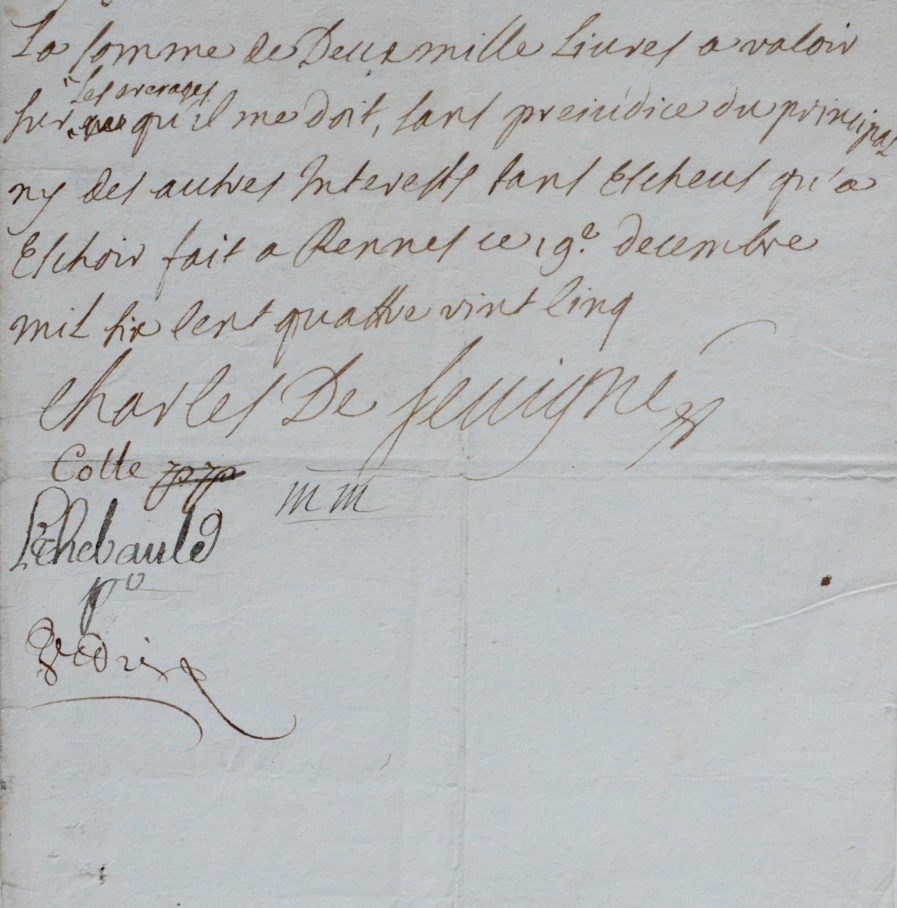 La somme de Deux mille Livres a valoir
les arerages
sur qu'il me doit, sans preiudice du principal
ny des autres Interests tans Escheus qu'a
Eschoir fait a Rennes ce 19e. decembre
mil six cent quattre vint cinq
Charles De Sevigné
Cotte
mm